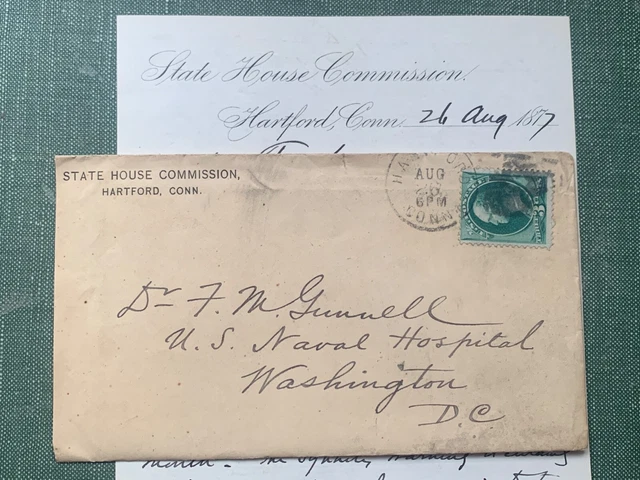 State House Commission.
Hartford, Conn. 26 Aug 1877
STATE HOUSE COMMISSION,
HARTFORD, CONN.
HARTFORD
AUG
6PM
CONN.
Dr F. M. Gunnell
U. S. Naval Hospital
Washington
D.C.